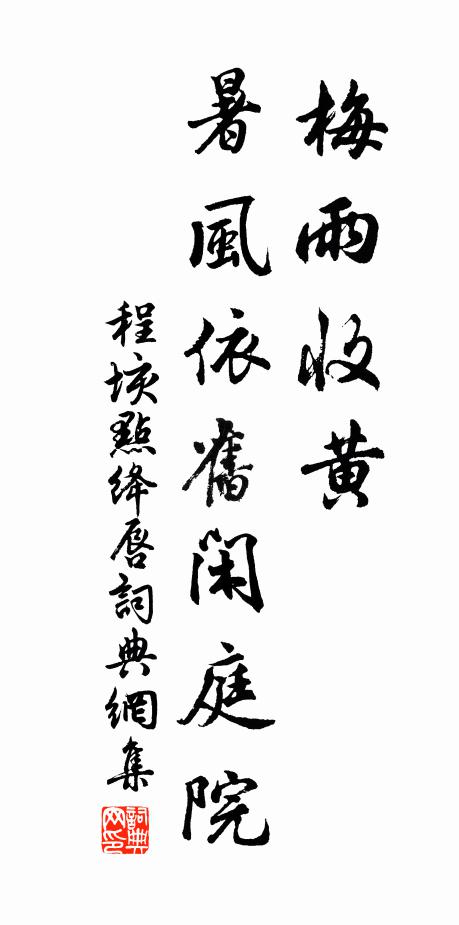 梅雨收黄
暑風依舊閑庭院
程垓點絳唇詞典網集
詞典网印